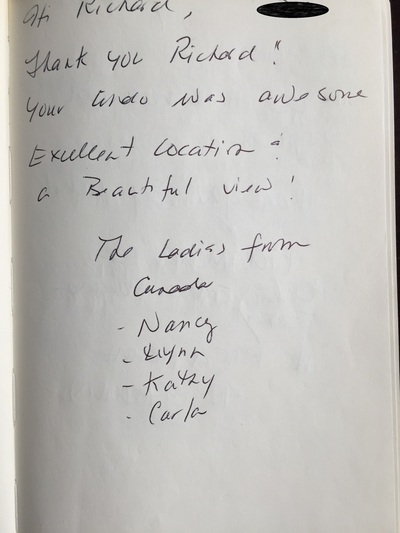 Hi Richard,
Thank you Richard!
Your Condo was awesome
Excellent Location &
a Beautiful view!
The Ladies from
Canada
- Nancy
- Lynn
- Kathy
- Carla